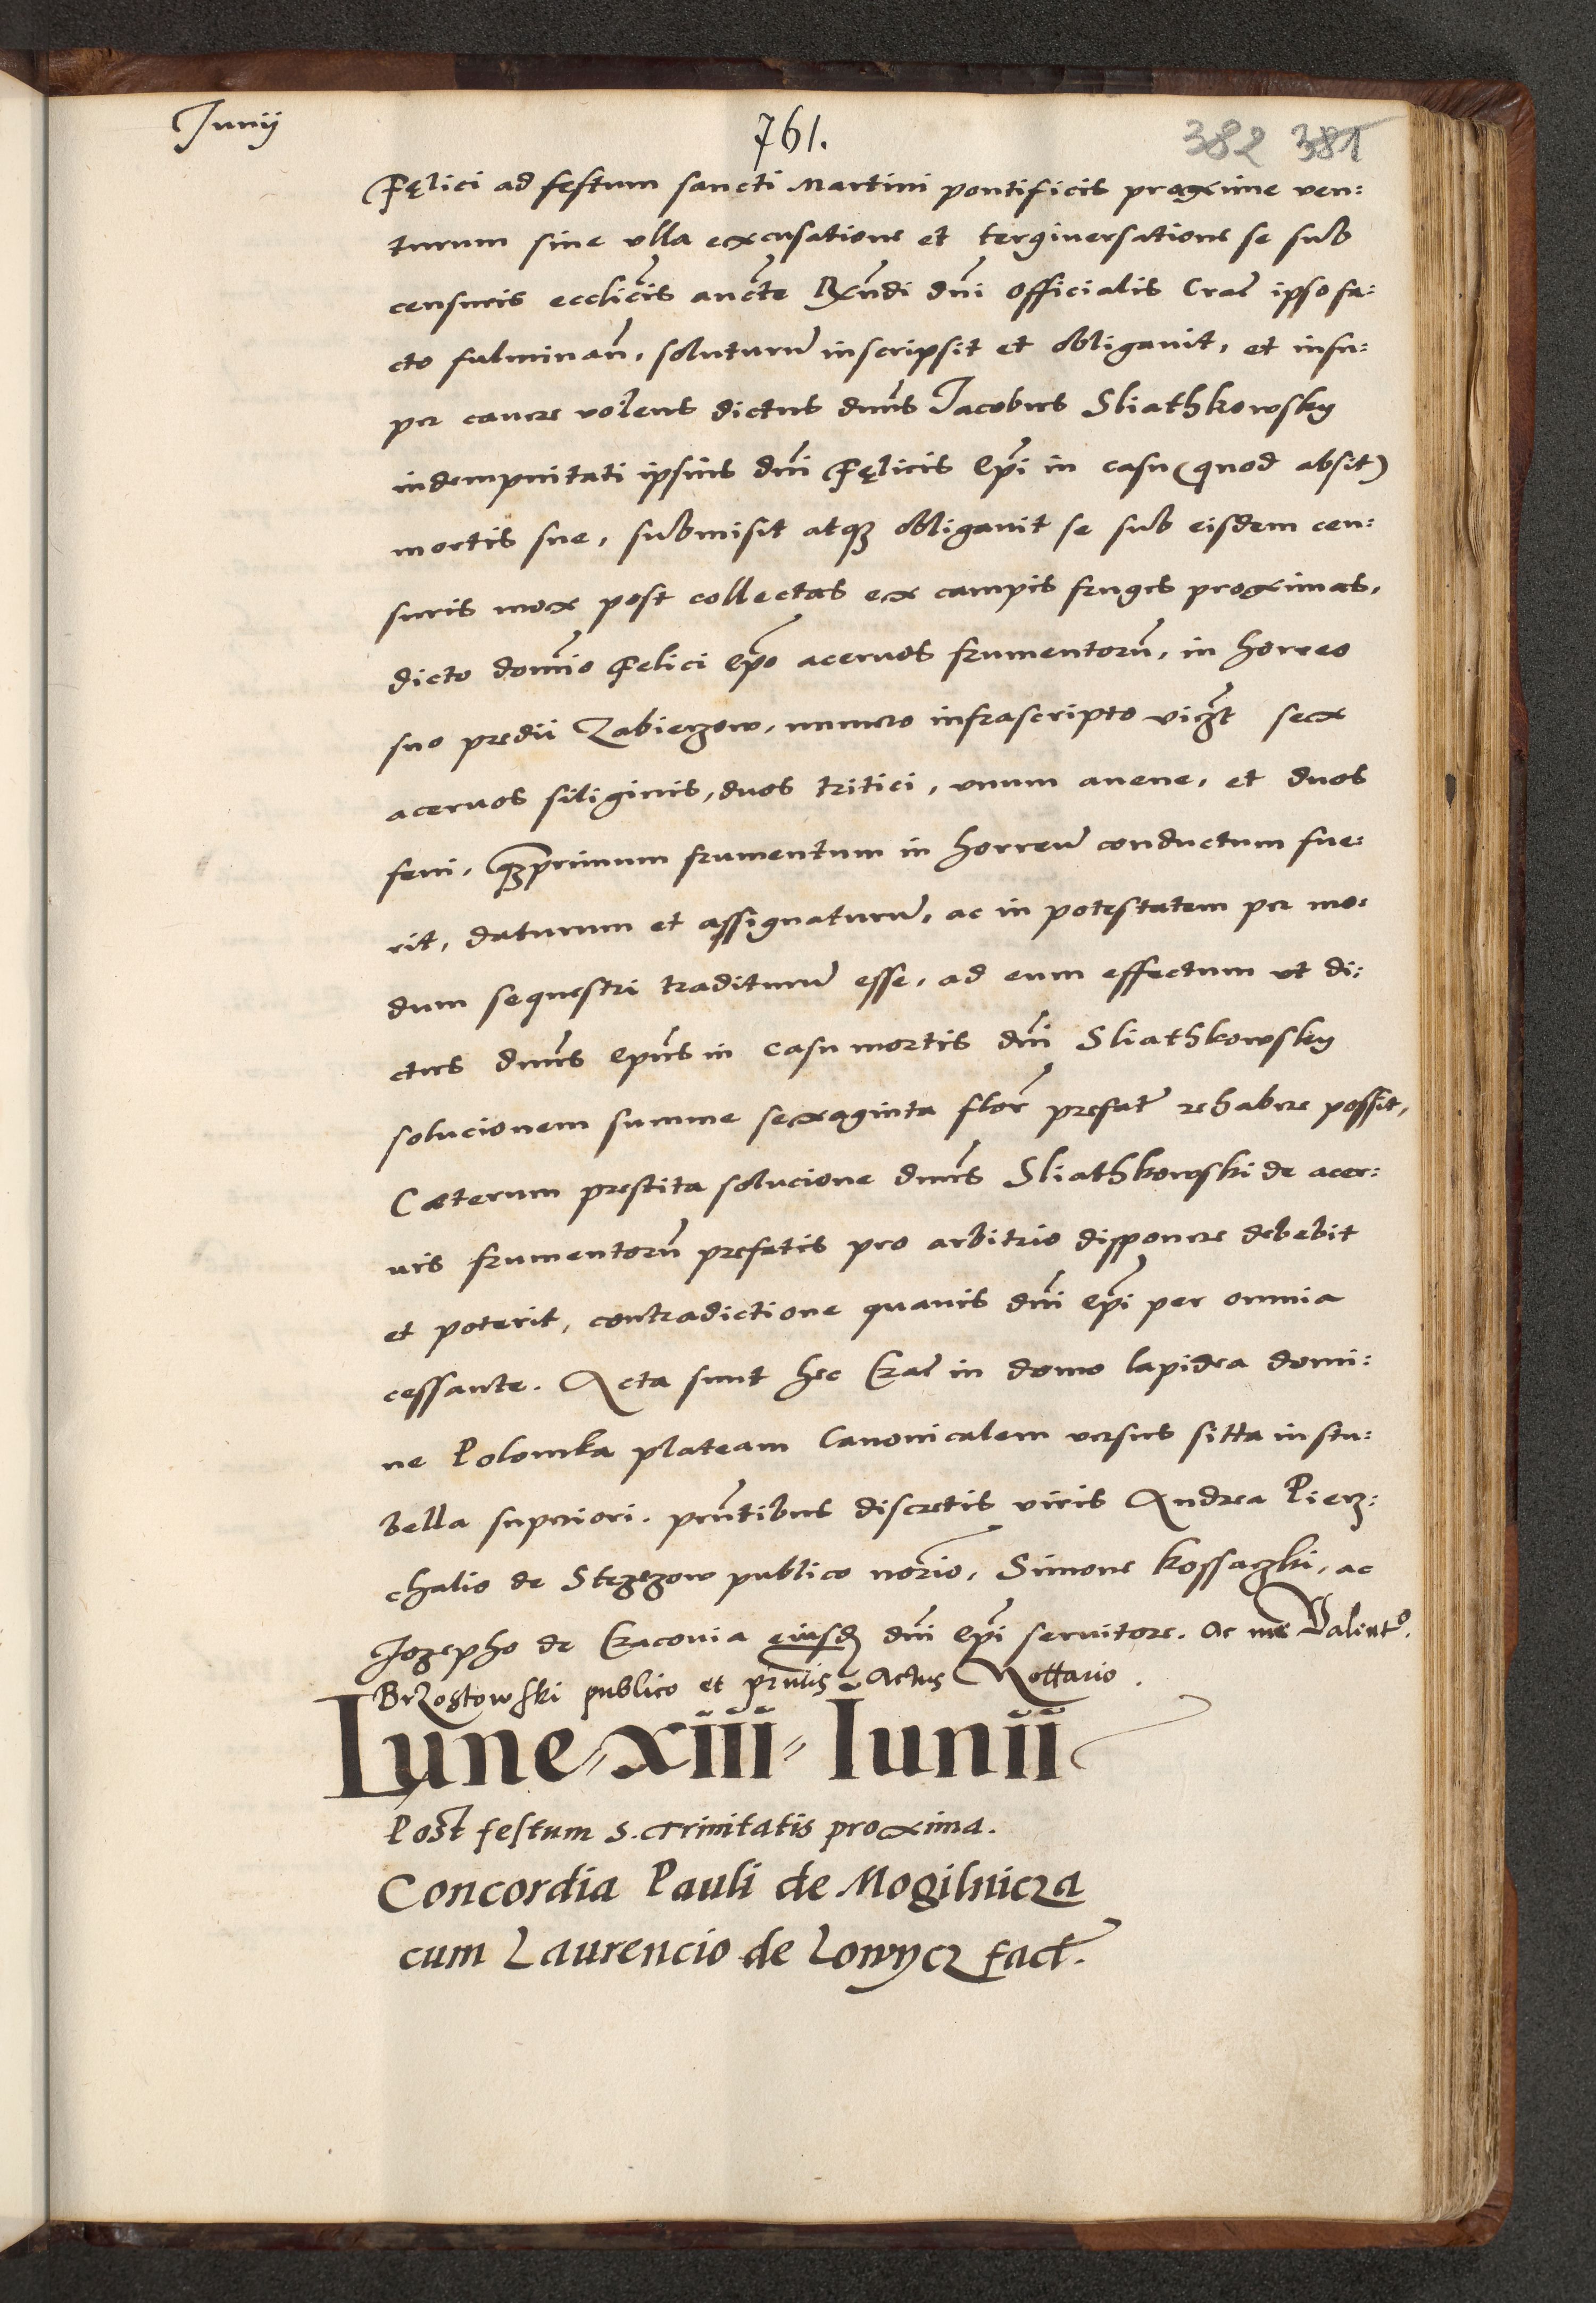 Junij
761.
382 381
Fęlici ad festum sancti Martini pontificis proxime ven:
turum sine vlla excusatione et tergiuersatione se sub
censuris ecclicis aucte Rndi dni officialis Crac ipso fa:
cto fulminan, soluturu inscripsit et obligauit, et insu:
per cauere volens dictus dnus Jacobus Sliathkowsky
indempnitati ipsius dni Fęlicis Epi in casu (quod absit)
mortis sue, submisit atq3 obligauit se sub eisdem cen:
suris mox post collectas ex campis fruges proximas,
dicto domino Felici Epo aceruos frumentoru, in horreo
suo predii Zabierzow, numero infrascripto vigt sex
aceruos siliginis, duos tritici, vnum auene, et duos
feni, q3primum frumentum in horreu conductum fue:
rit, daturum et assignaturu, ac in potestatem per mo:
dum sequestri traditurum esse, ad eum effectum vt di:
ctus dnus Epus in casu mortis dni Sliathkowsky
solucionem summe sexaginta flor prefat rehabere possit,
Cæterum prestita solucione dnus Sliathkowski de acer:
uis frumentoru prefatis pro arbitrio disponere debebit
et poterit, contradictione quauis dni Epi per omnia
cessante. Acta sunt hec Crac in domo lapidea domi:
ne Polomka plateam Canonicalem versus sitta in stu:
bella superiori. pntibus discretis viris Andrea Pierz:
chalio de Strzezow publico norio, Simone Kossaczki, ac
Jozepho de Cracouia eiusd dni Epi seruitore. Ac me Valento.
Brzostowski publico et pntis Actus Nottario.
Lune xiiii Iunii
Post festum S. Trinitatis proxima.
Concordia Pauli de Mogilnicza
cum Laurencio de Lowycz fact.